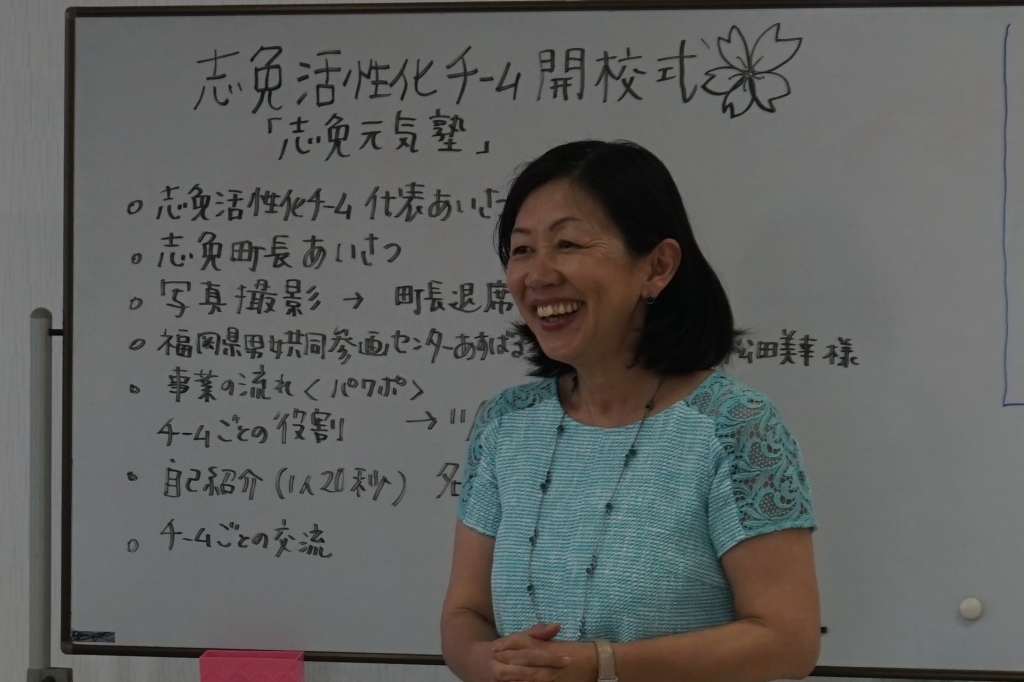 志免活性化チーム 開校式
「志免元気塾」
○ 志免活性化チーム 代表あいさ
○ 志免町長あいさつ
○ 写真撮影 → 町長退席
○ 福岡県男女共同参画センターあすばる 松田美幸様
○ 事業の流れ〈パワポ〉
チームごとの役割 → 11/
○ 自己紹介(1人20秒)
○ チームごとの交流